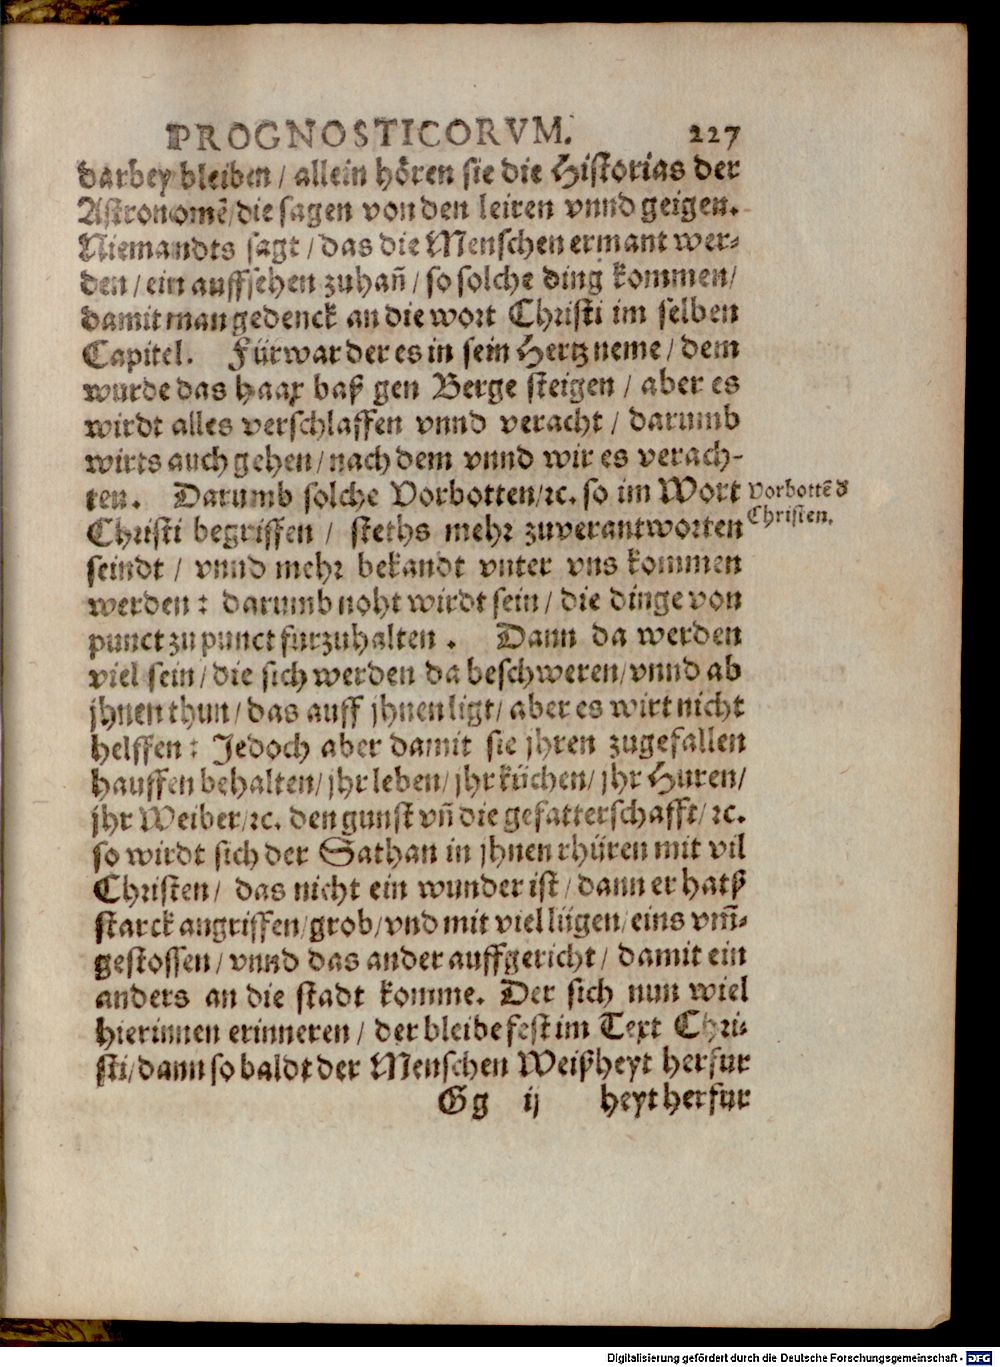 PROGNOSTICORVM. 227
darbey bleiben / allein hören sie die Historias der
Astronomẽ/die sagen von den leiren vnnd geigen.
Niemandts sagt / das die Menschen ermant wer⸗
den / ein auffsehen zuhañ / so solche ding kommen/
damit man gedenck an die wort Christi im selben
Capitel. Fürwar der es in sein Hertz neme / dem
wurde das haar baß gen Berge steigen / aber es
wirdt alles verschlaffen vnnd veracht / darumb
wirts auch gehen / nach dem vnnd wir es verach-
ten. Darumb solche Vorbotten/ꝛc. so im Wort
Vorbottẽ d
Christi begriffen / steths mehr zuverantworten
Christen.
seindt / vnnd mehr bekandt vnter vns kommen
werden : darumb noht wirdt sein / die dinge von
punct zu punct furzuhalten . Dann da werden
viel sein / die sich werden da beschweren/vnnd ab
jhnen thun / das auff jhnen ligt/ aber es wirt nicht
helffen : Jedoch aber damit sie jhren zugefallen
hauffen behalten/ jhr leben/ jhr küchen/ jhr Huren/
jhr Weiber/ꝛc. den gunst vñ die gefatterschafft/ ꝛc.
so wirdt sich der Sathan in jhnen rhüren mit vil
Christen/ das nicht ein wunder ist / dann er hatß
starck angriffen/grob/vnd mit viel lügen/ eins vm̃⸗
gestossen / vnnd das ander auffgericht / damit ein
anders an die stadt komme. Der sich nun wiel
hierinnen erinneren / der bleibe fest im Text Chri⸗
sti/dann so baldt der Menschen Weißheyt herfur
Gg ij heyt herfur
Digitalisierung gefördert durch die Deutsche Forschungsgemeinschaft - DFG